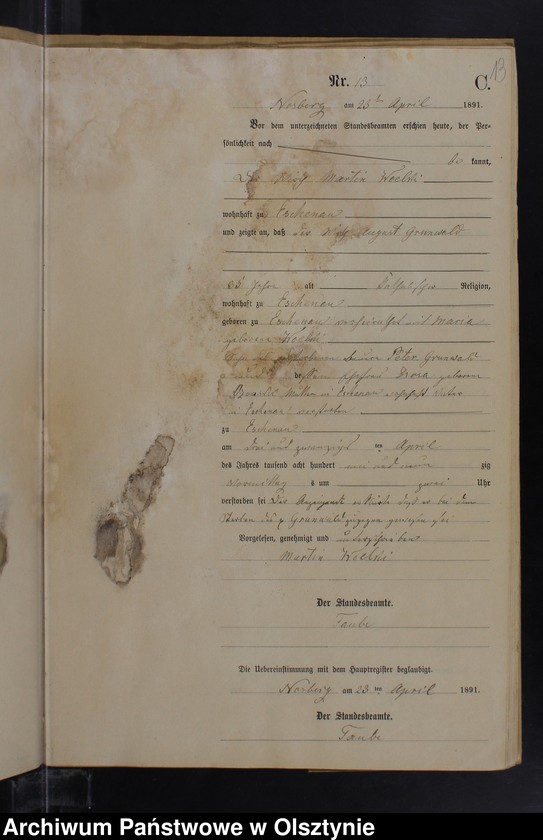 13
Nr. 13
C.
Norberg am 23ten April 1891.
Vor dem unterzeichneten Standesbeamten erschien heute, der Per-
sönlichkeit nach
be kannt,
Martin Woelki
wohnhaft zu Eschenau
und zeigte an, daß der August Grunwald
Jahre alt katholischer Religion,
wohnhaft zu Eschenau
geboren zu Eschenau verheirathet mit Maria
geborene Woelki
Sohn des Peter Grunwald
und dessen Ehefrau geborene
in Eschenau
in Eschenau verstorben
zu Eschenau
am drei und zwanzigsten April
des Jahres tausend acht hundert ein und neun zig
Vormittags um zwei Uhr
verstorben sei Der Anzeigende erklärte daß er bei dem
Sterben des Grunwald zugegen gewesen sei
Vorgelesen, genehmigt und unterschrieben
Martin Woelki
Der Standesbeamte.
Taube
Die Uebereinstimmung mit dem Hauptregister beglaubigt.
Norberg am 23ten April 1891.
Der Standesbeamte.
Taube
Archiwum Państwowe w Olsztynie